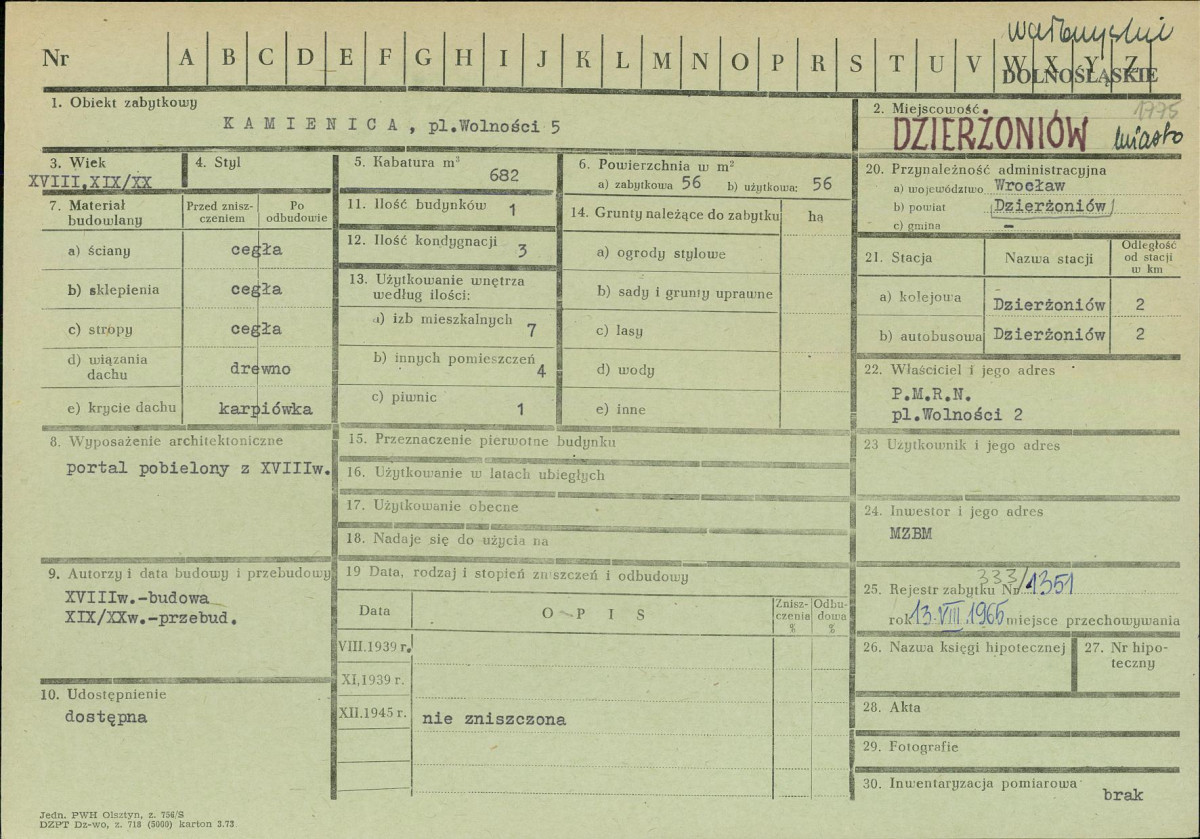 wałbrzyskie
Nr A B C D E F G H I J K L M N O P R S T U V W X Y Z
DOLNOŚLĄSKIE
1. Obiekt zabytkowy
KAMIENICA, pl.Wolności 5
2. Miejscowość.
1775
DZIERŻONIÓW miasto
3. Wiek
XVIII, XIX/XX
4. Styl
5. Kabatura m³
682
6. Powierzchnia w m²
a) zabytkowa 56 b) użytkowa: 56
7. Materiał budowlany
Przed zniszczeniem
Po odbudowie
a) ściany cegła
b) sklepienia cegła
c) stropy cegła
d) wiązania dachu drewno
e) krycie dachu karpiówka
8. Wyposażenie architektoniczne
portal pobielony z XVIIIw.
9. Autorzy i data budowy i przebudowy
XVIIIw.-budowa
XIX/XXw.-przebud.
10. Udostępnienie
dostępna
11. Ilość budynków 1
12. Ilość kondygnacji
3
13. Użytkowanie wnętrza
według ilości:
a) izb mieszkalnych 7
b) innych pomieszczeń 4
c) piwnic 1
14. Grunty należące do zabytku ha
a) ogrody stylowe
b) sady i grunty uprawne
c) lasy
d) wody
e) inne
15. Przeznaczenie pierwotne budynku
16. Użytkowanie w latach ubiegłych
17. Użytkowanie obecne
18. Nadaje się do użycia na
19 Data, rodzaj i stopień zniszczeń i odbudowy
Data OPIS Zniszczenia % Odbudowa %
VIII.1939 r.
XI,1939 r.
XII.1945 r. nie zniszczona
20. Przynależność administracyjna
a) województwo Wrocław
b) powiat Dzierżoniów
c) gmina –
21. Stacja Nazwa stacji Odległość od stacji w km
a) kolejowa Dzierżoniów 2
b) autobusowa Dzierżoniów 2
22. Właściciel i jego adres
P.M.R.N.
pl.Wolności 2
23 Użytkownik i jego adres
24. Inwestor i jego adres
MZBM
25. Rejestr zabytku Nr 333/1351
rok 13.VIII.1965 miejsce przechowywania
26. Nazwa księgi hipotecznej
27. Nr hipoteczny
28. Akta
29. Fotografie
30. Inwentaryzacja pomiarowa
brak
Jedn. PWH Olsztyn, z. 756/S
DZPT Dz-wo, z. 718 (5000) karton 3.73